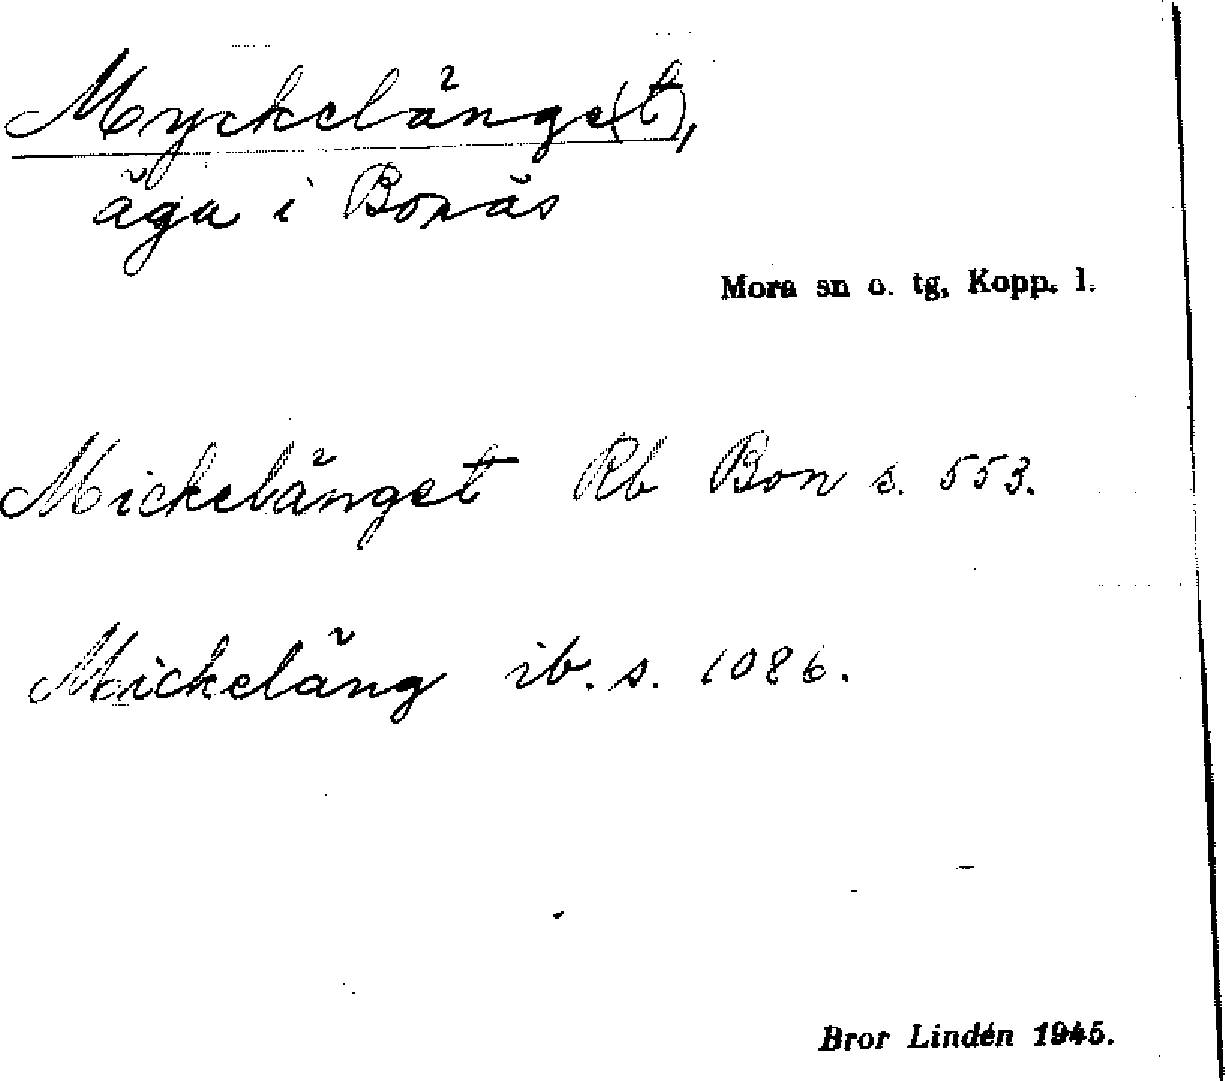 Myckelänge(t),
äga i Bonäs
Mora sn o. tg, Kopp. l.
Mickelänget Rb Bon s. 553.
Mickeläng ib. s. 1086.
Bror Lindén 1945.